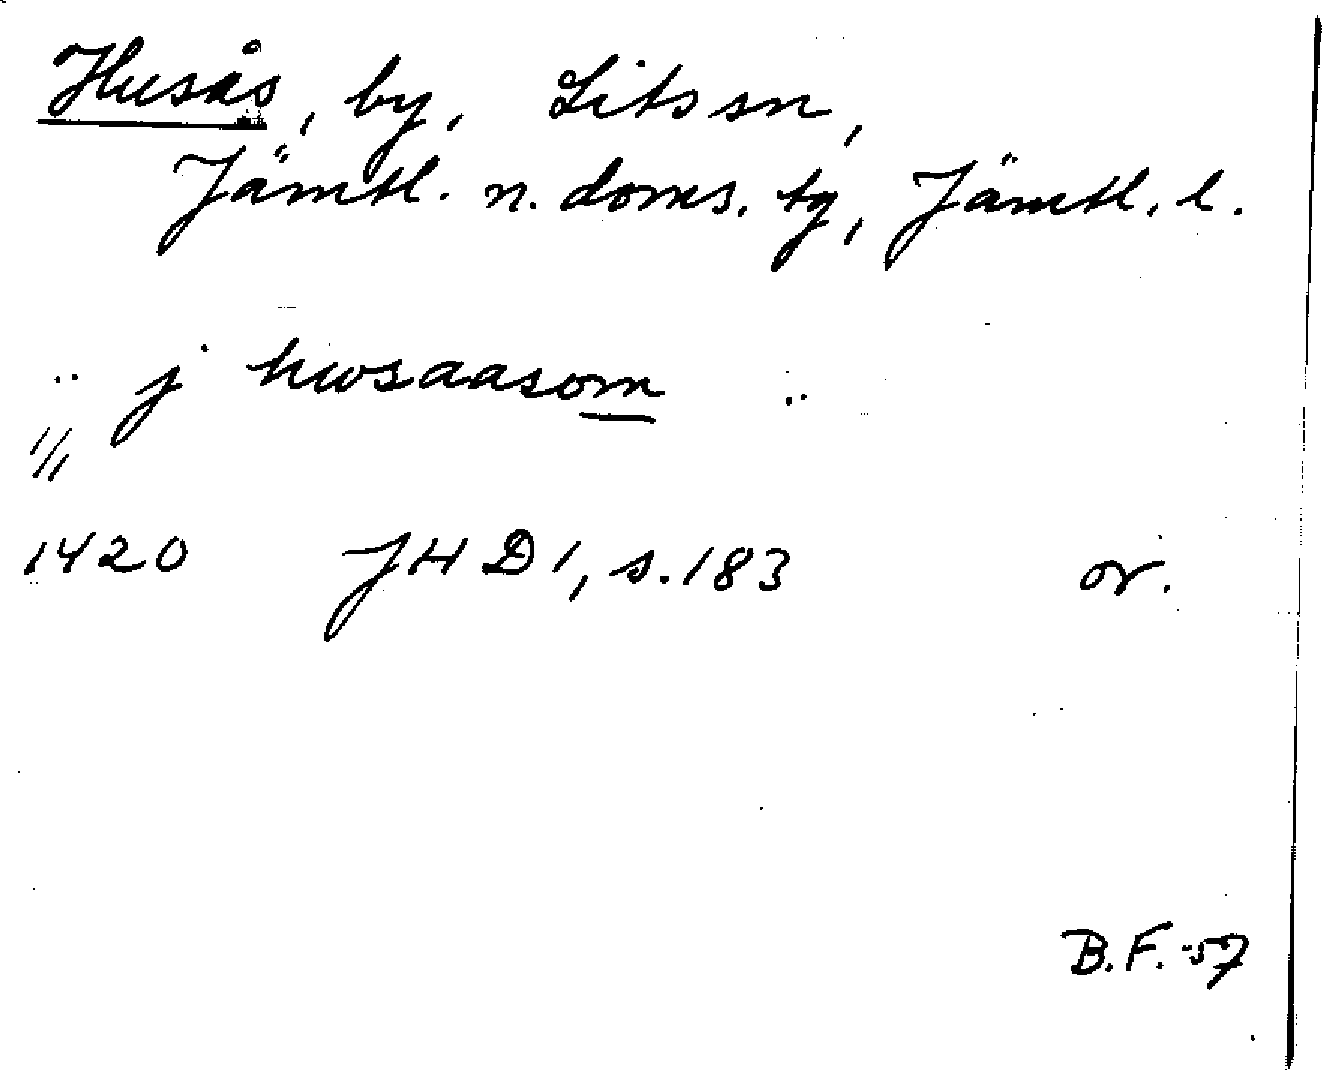 Husås, by, Lits sn,
Jämtl. n. doms. tg, Jämtl. l.
.. j hwsaasom ..
1/11
1420 JHD 1, s. 183 or.
B.F. 57